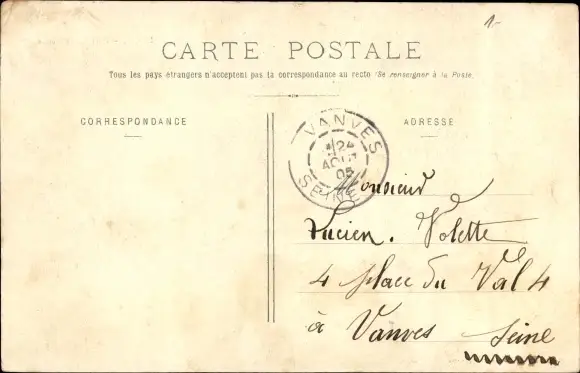 1-
CARTE POSTALE
Tous les pays étrangers n'acceptent pas la correspondance au recto (Se renseigner à la Poste.
CORRESPONDANCE
ADRESSE
VANVES
24
AOUT
05
SEINE
Monsieur
Lucien. Volette
4 place du Val 4
à Vanves Seine